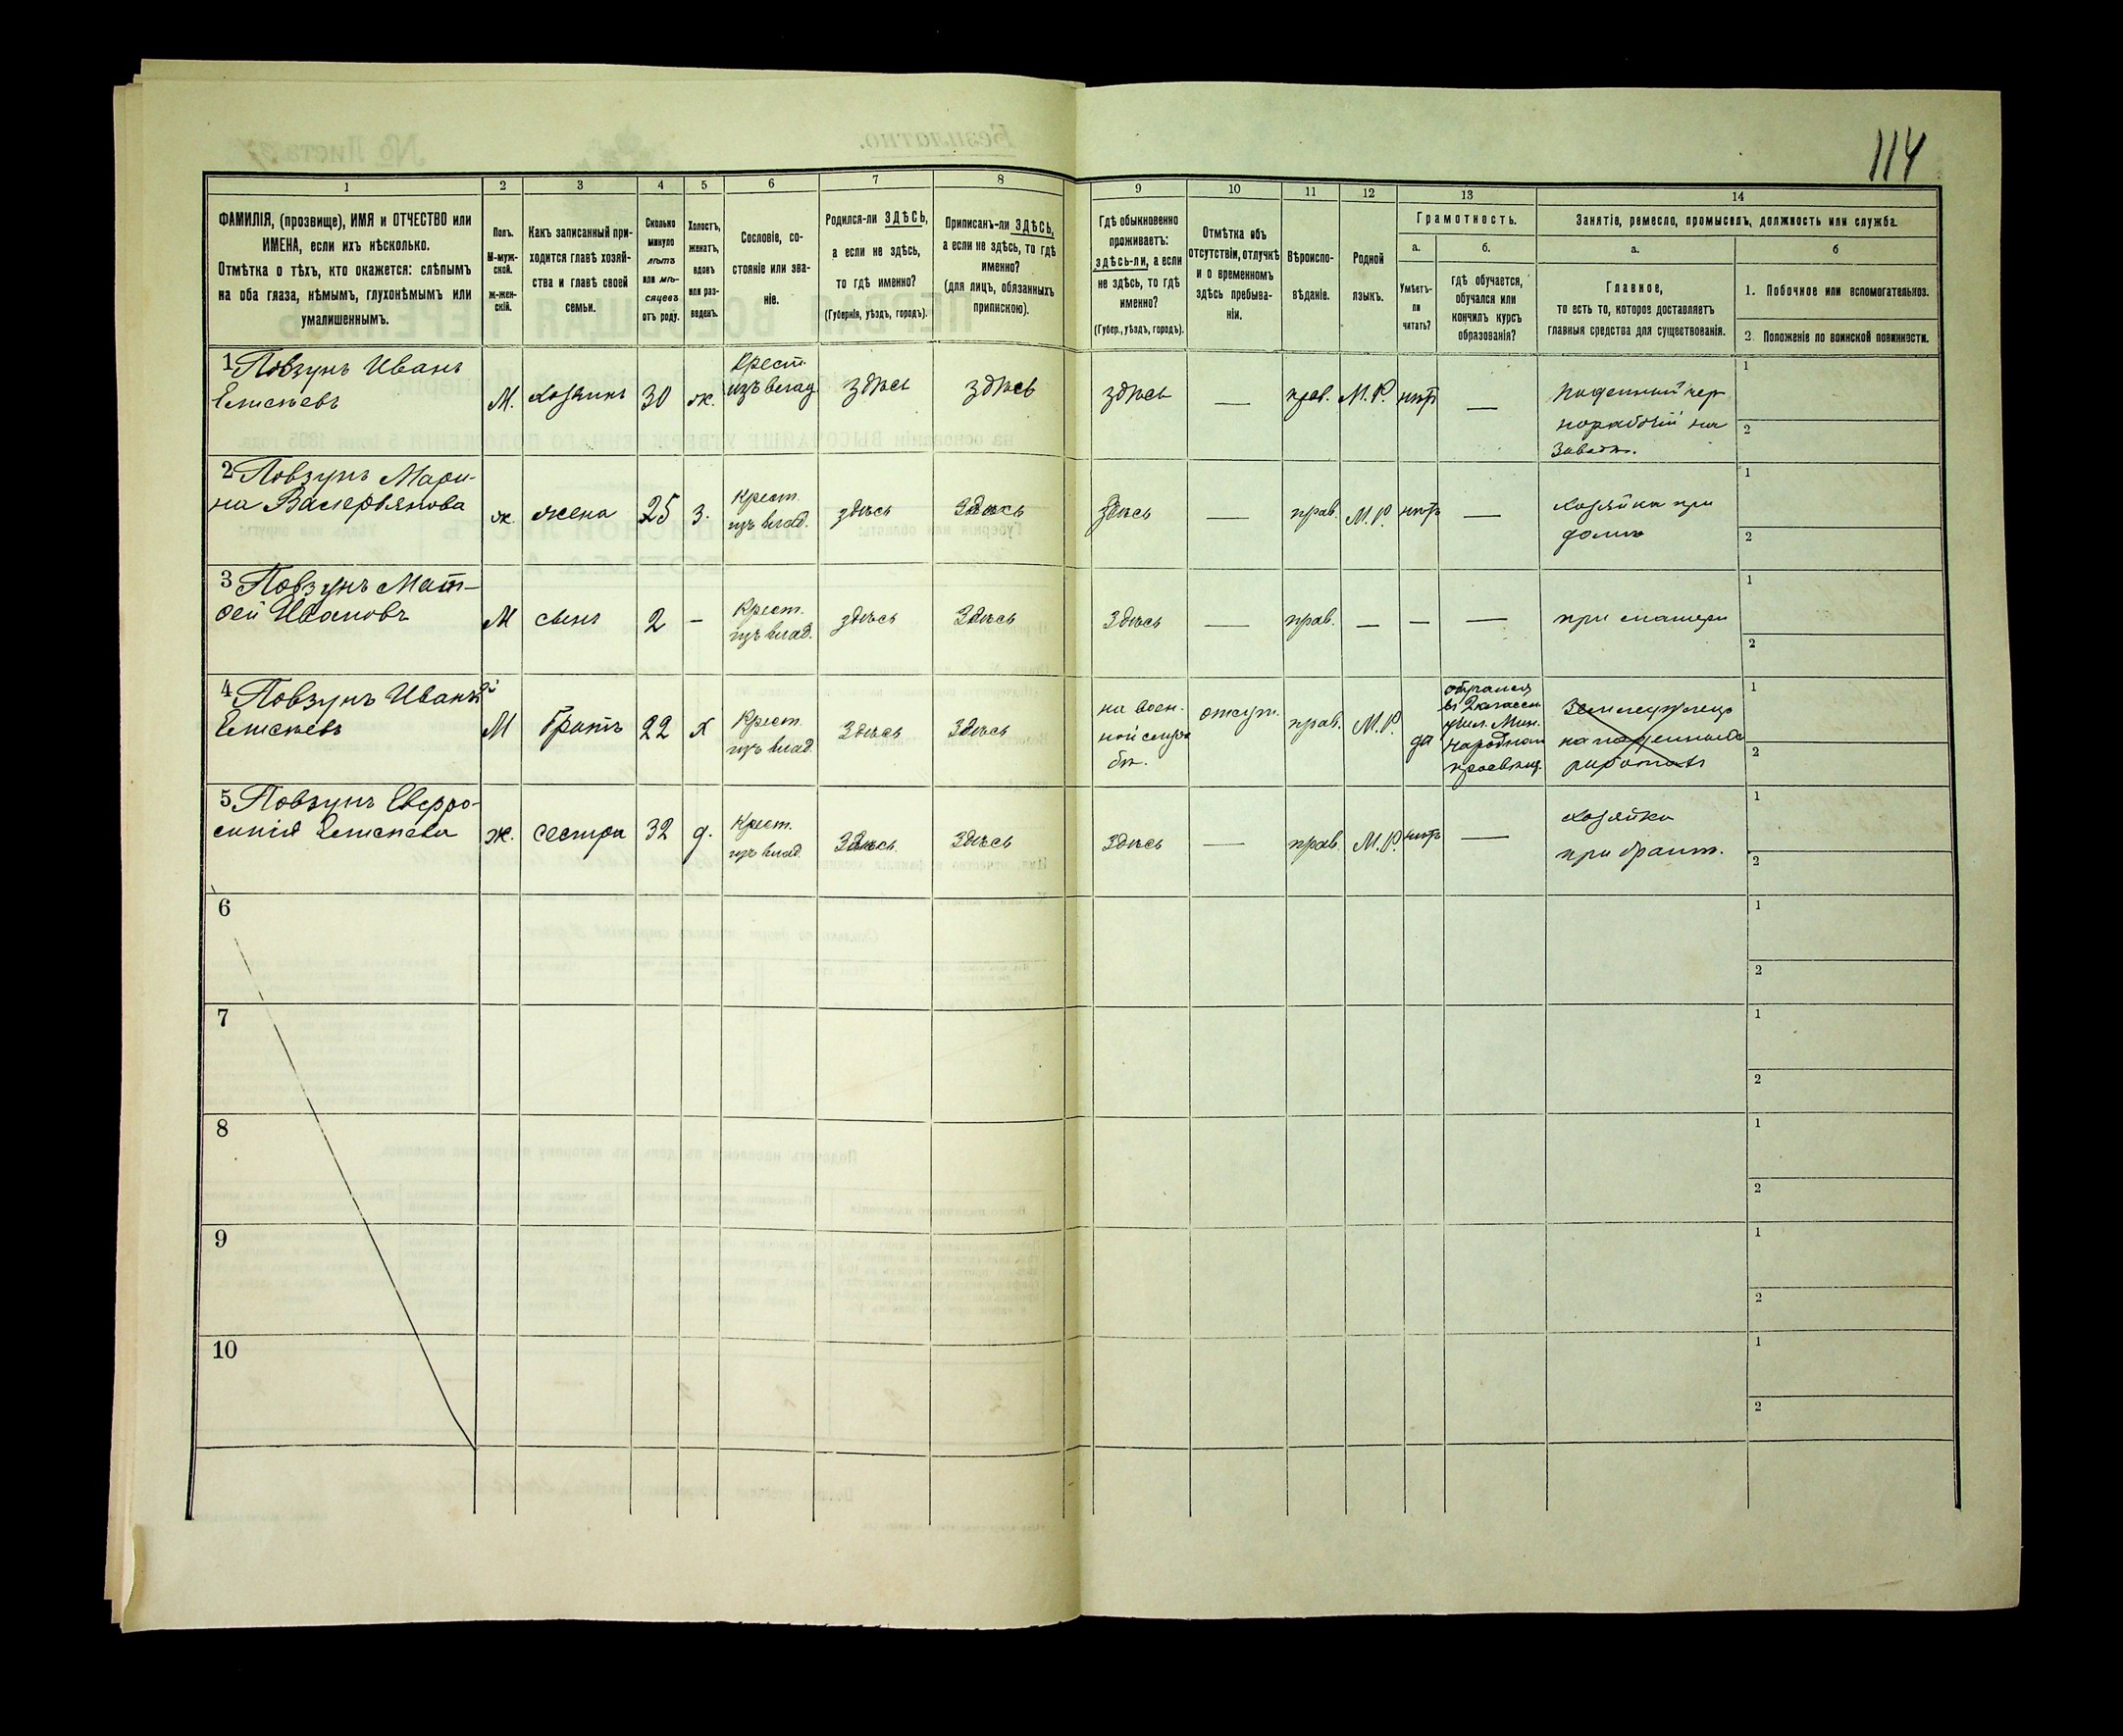 114
1
2
3
4
5
6
7
8
9
10
11
12
13
14
ФАМИЛІЯ, (прозвище), ИМЯ и ОТЧЕСТВО или
ИМЕНА, если ихъ нѣсколько.
Отмѣтка о тѣхъ, кто окажется: слѣпымъ
на оба глаза, нѣмымъ, глухонѣмымъ или
умалишеннымъ.
Полъ.
М-муж-
ской.
Ж-жен-
скій.
Какъ записанный при-
ходится главѣ хозяй-
ства и главѣ своей
семьи.
Сколько
минуло
лѣтъ
или мѣ-
сяцевъ
отъ роду.
Холостъ,
женатъ,
вдовъ
или раз-
веденъ.
Сословіе, со-
стояніе или зва-
ніе.
Родился-ли ЗДѢСЬ,
а если не здѣсь,
то гдѣ именно?
(Губернія, уѣздъ, городъ).
Приписанъ-ли ЗДѢСЬ,
а если не здѣсь, то гдѣ
именно?
(для лицъ, обязанныхъ
припискою).
Гдѣ обыкновенно
проживаетъ:
здѣсь-ли, а если
не здѣсь, то гдѣ
именно?
(Губер., уѣздъ, городъ).
Отмѣтка объ
отсутствіи, отлучкѣ
и о временномъ
здѣсь пребыва-
ніи.
Вѣроиспо-
вѣданіе.
Родной
языкъ.
Грамотность.
а.
Умѣетъ-
ли
читать?
б.
гдѣ обучается,
обучался или
кончилъ курсъ
образованія?
Занятіе, ремесло, промыселъ, должность или служба.
а.
Главное,
то есть то, которое доставляетъ
главныя средства для существованія.
б
1. Побочное или вспомогательное.
2. Положеніе по воинской повинности.
1 Повзунъ Иванъ
Елисѣевъ
М.
Хозяинъ
30
ж.
Крест.
изъ влад.
здѣсь
здѣсь
здѣсь
—
прав.
М.Р.
нѣтъ
—
Поденный чер
норабочій на
Заводѣ.
1
2
2 Повзунъ Мари-
на Валерьянова
ж.
жена
25
з.
Крест.
изъ влад.
здѣсь
Здѣсь
здѣсь
—
прав.
М.Р.
нѣтъ
—
Хозяйка при
домѣ
1
2
3 Повзунъ Мат-
ѳей Ивановъ
М
сынъ
2
-
Крест.
изъ влад.
здѣсь
Здѣсь
Здѣсь
—
прав.
—
—
—
при матери
1
2
4 Повзунъ Иванъ 2й
Елисѣевъ
М
братъ
22
х
Крест.
изъ влад.
Здѣсь
Здѣсь
на воен.
ной служ
бѣ.
отсут.
прав.
М.Р.
да
обучался
въ 2 классн
учил. Мин.
народнаго
просвѣщ.
Земледѣлецъ
на поденныхъ
работахъ
1
2
5 Повзунъ Евфро-
синія Елисѣева
Ж.
сестра
32
д.
Крест.
изъ влад.
Здѣсь
Здѣсь
Здѣсь
—
прав.
М.Р.
нѣтъ
—
Хозяйка
при братѣ.
1
2
6
1
2
7
1
2
8
1
2
9
1
2
10
1
2